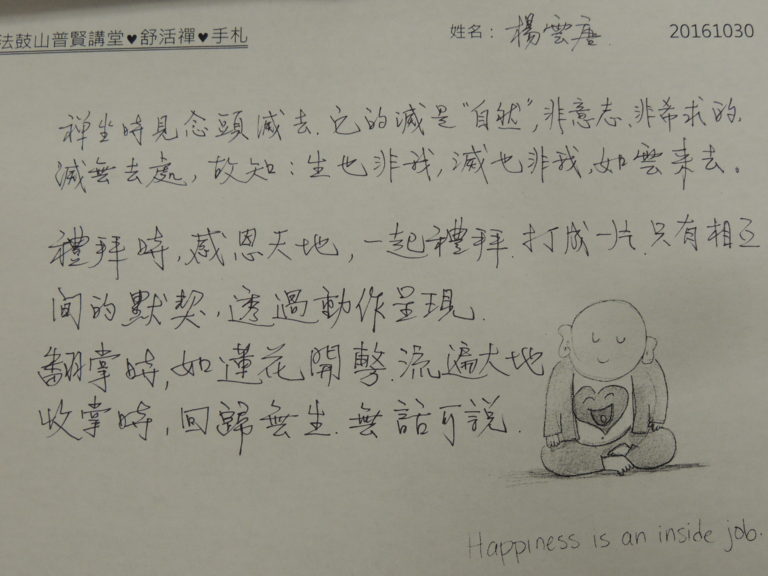 法鼓山普賢講堂♥舒活禪♥手札 姓名：楊雲唐 20161030
禅坐時見念頭滅去.它的滅是"自然",非意志、非希求的.
滅無去處，故知：生也非我,滅也非我,如雲來去。
禮拜時,感恩天地，一起禮拜.打成一片.只有相互
間的默契,透過動作呈現.
翻掌時,如蓮花開,流遍大地
收掌時,回歸無生.無話可說.
Happiness is an inside job.